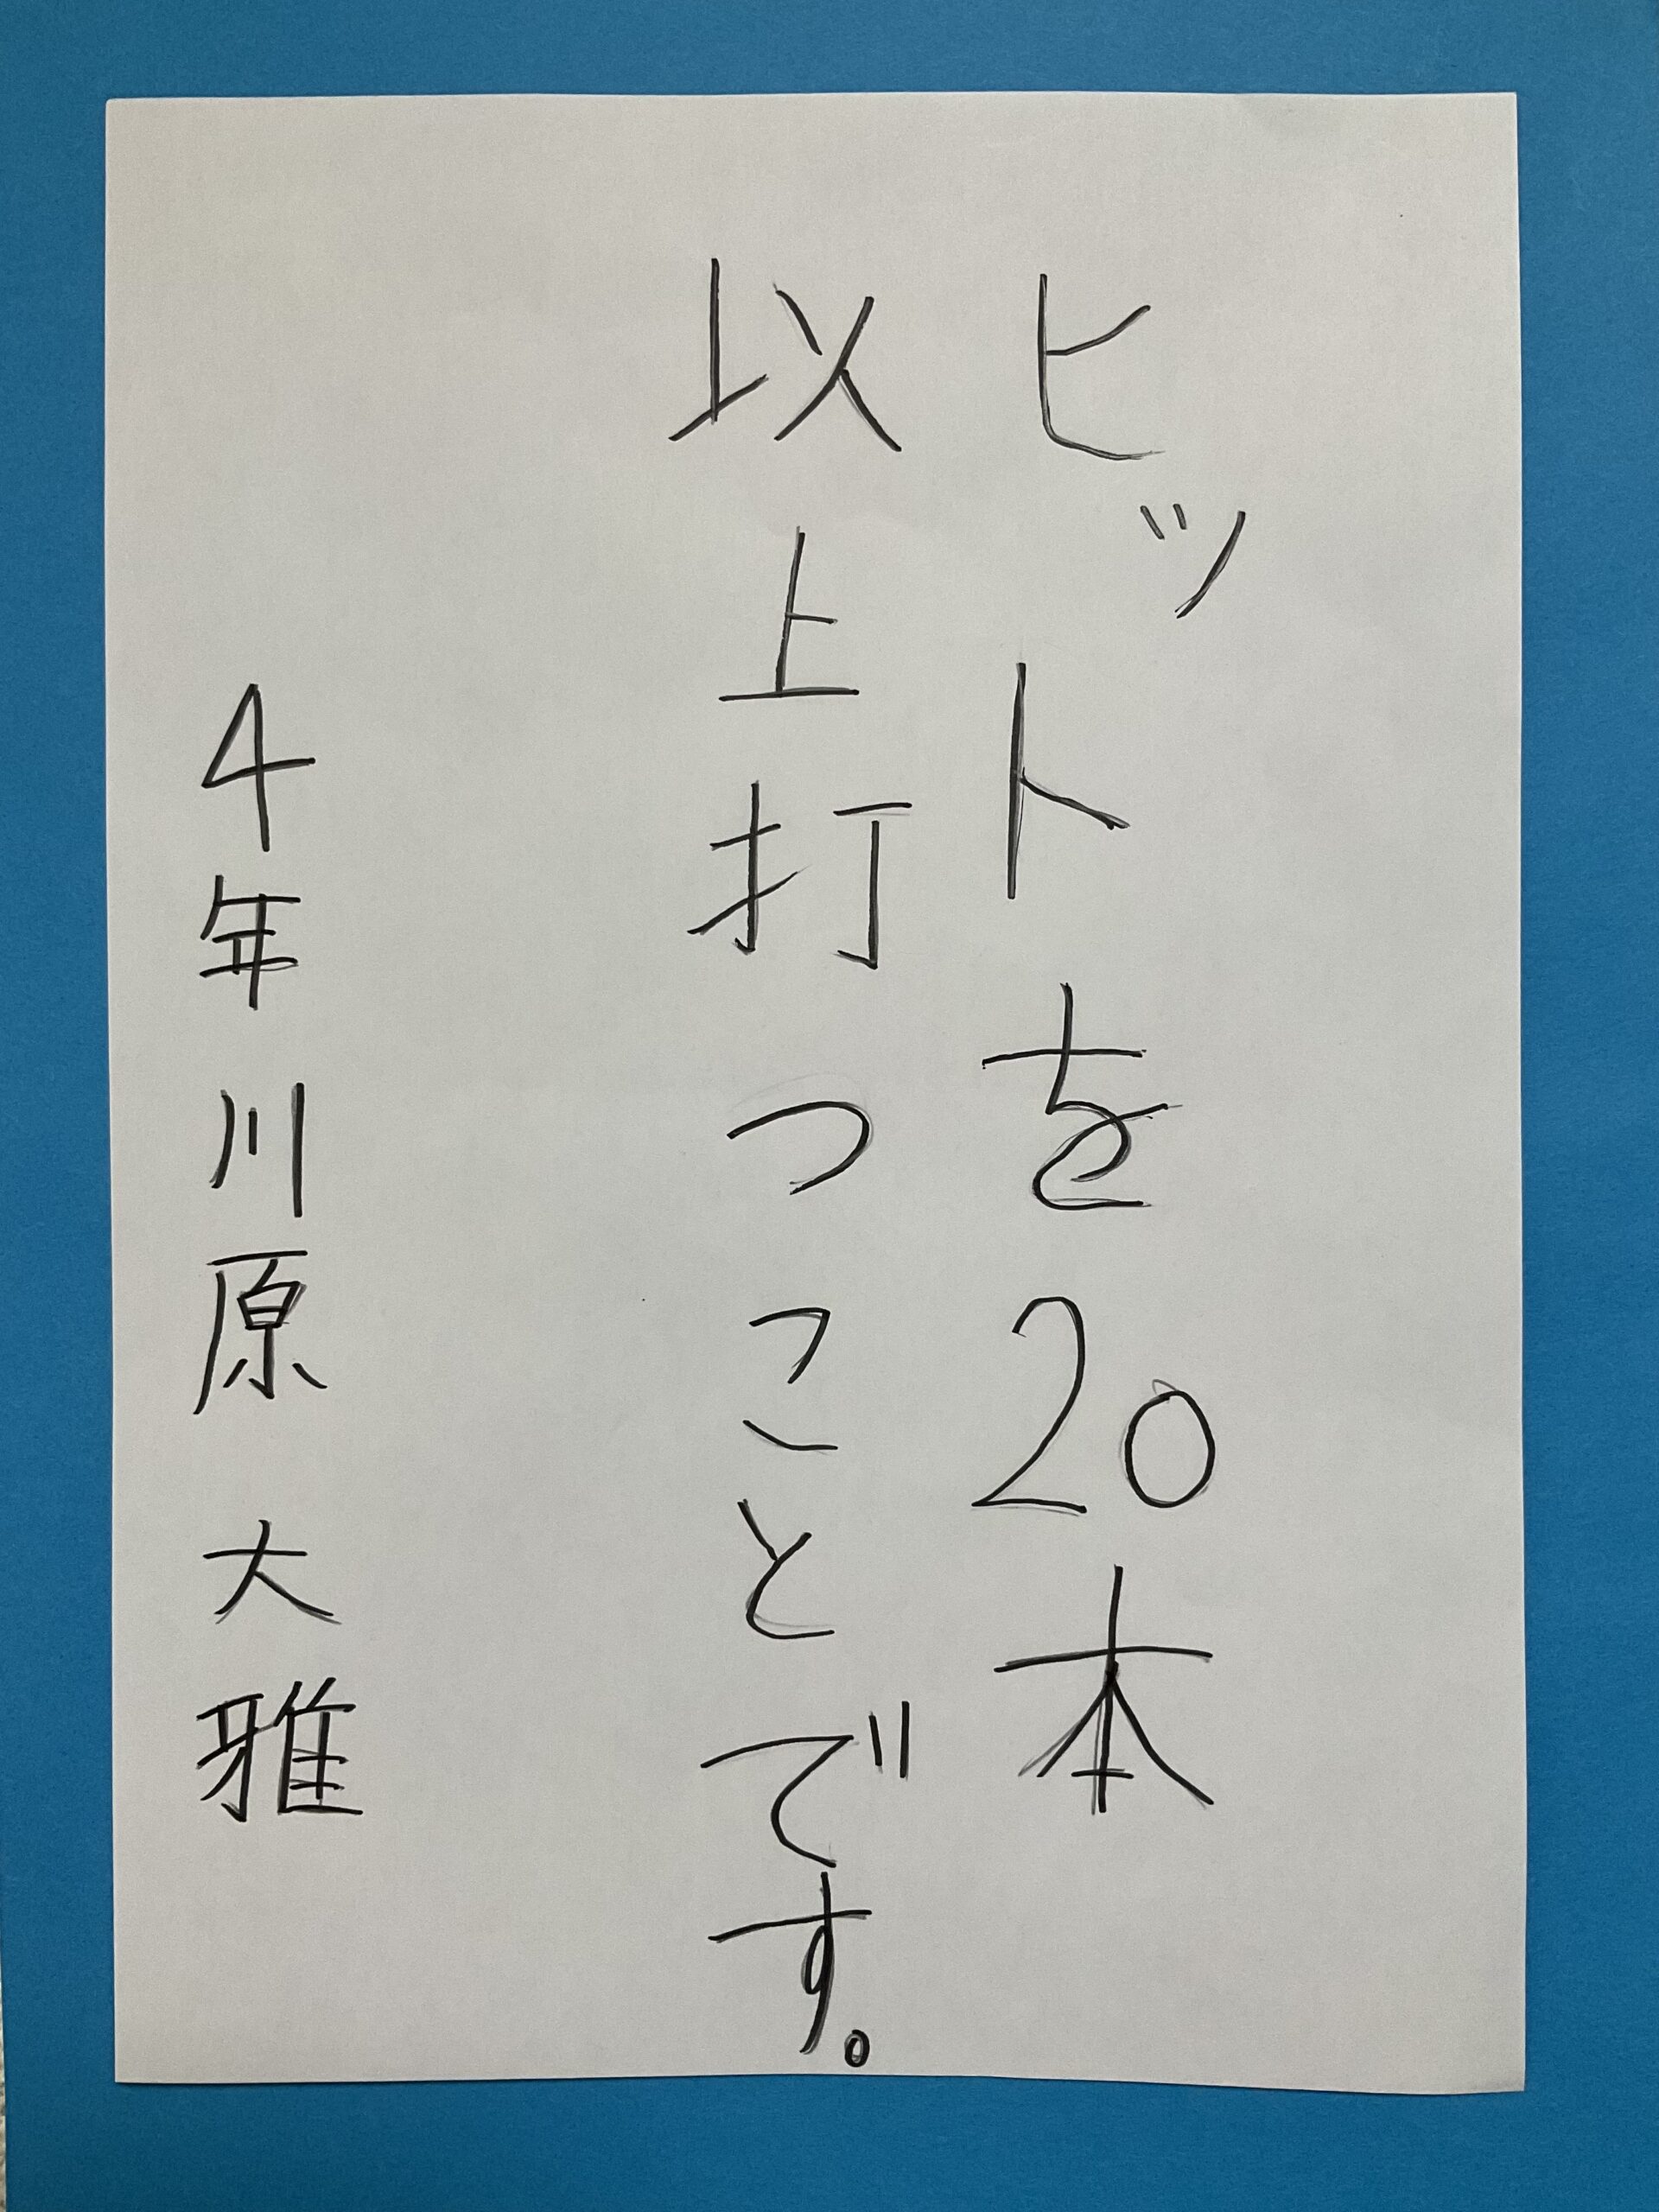 ヒットを20本
以上打つことです。
4年 川原 大雅